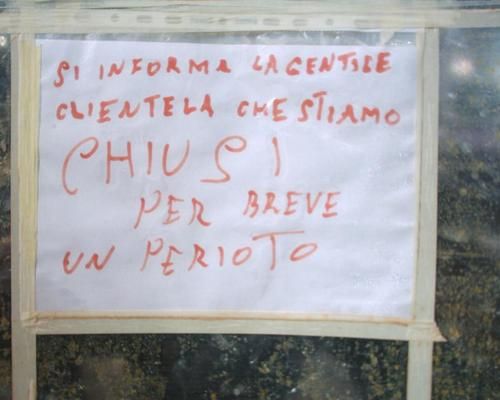 SI INFORMA LA GENTILE
CLIENTELA CHE STIAMO
CHIUSI
PER BREVE
UN PERIOTO